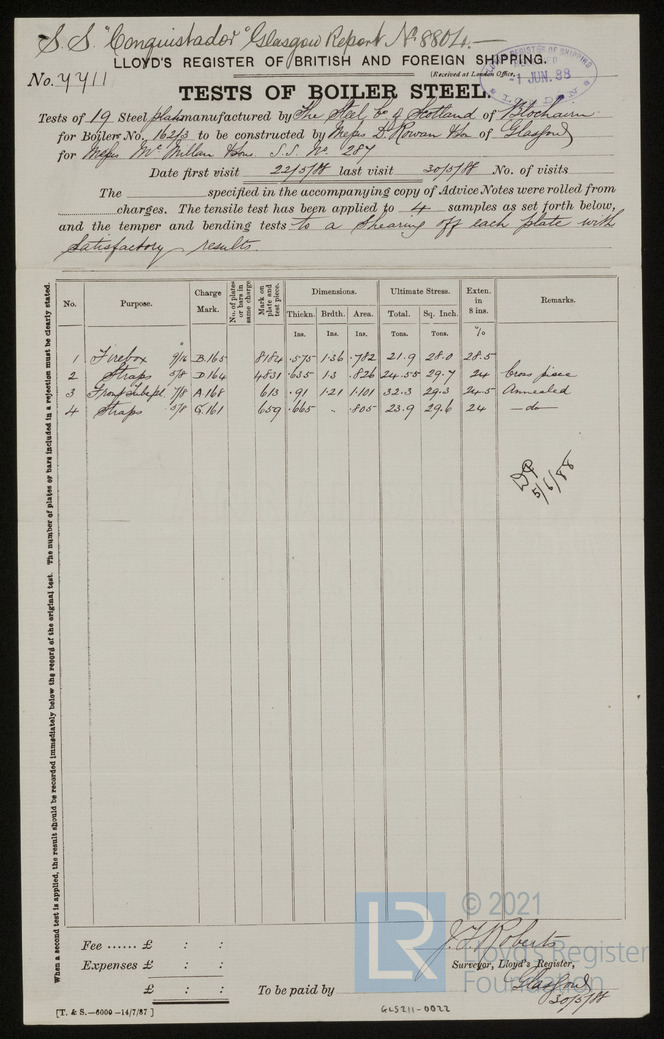 S.S. "Conquistador" Glasgow Report No 8804.—
LLOYD'S REGISTER OF BRITISH AND FOREIGN SHIPPING.
No. 7711
(Received at London Office,
1 JUN. 88
TESTS OF BOILER STEEL.
Tests of 19 Steel plates manufactured by The Steel Co of Scotland of Blochairn
for Boiler No. 162/3 to be constructed by Messrs D. Rowan & Son of Glasgow
for Messrs McMillan & Sons S.S. No 287
Date first visit 22/5/88 last visit 30/5/88 No. of visits
The specified in the accompanying copy of Advice Notes were rolled from
charges. The tensile test has been applied to 4 samples as set forth below,
and the temper and bending tests to a shearing off each plate with
satisfactory results.
When a second test is applied, the result should be recorded immediately below the record of the original test. The number of plates or bars included in a rejection must be clearly stated.
No. Purpose. Charge Mark. No. of plates or bars in same charge Mark on plate and test piece. Dimensions. Ultimate Stress. Exten. in 8 ins. Remarks.
Thickn. Brdth. Area. Total. Sq. Inch.
Ins. Ins. Ins. Tons. Tons. %
1 Firebox 9/16 B.165 8184 .575 1.36 .782 21.9 28.0 28.5
2 Straps 5/8 D.164 4831 .635 1.3 .826 24.55 29.7 24 Cross piece
3 Front Tubepl. 7/8 A.168 613 .91 1.21 1.101 32.3 29.3 24.5 Annealed
4 Straps 5/8 G.161 659 .665 " .805 23.9 29.6 24 — do —
5/6/88
Fee ...... £ : :
Expenses £ : :
£ : :
To be paid by
J. T. Roberts
Surveyor, Lloyd's Register,
Glasgow
30/5/88
[T. & S.—6000—14/7/87]
GLS211-0022
LR
© 2021
Lloyd's Register
Foundation